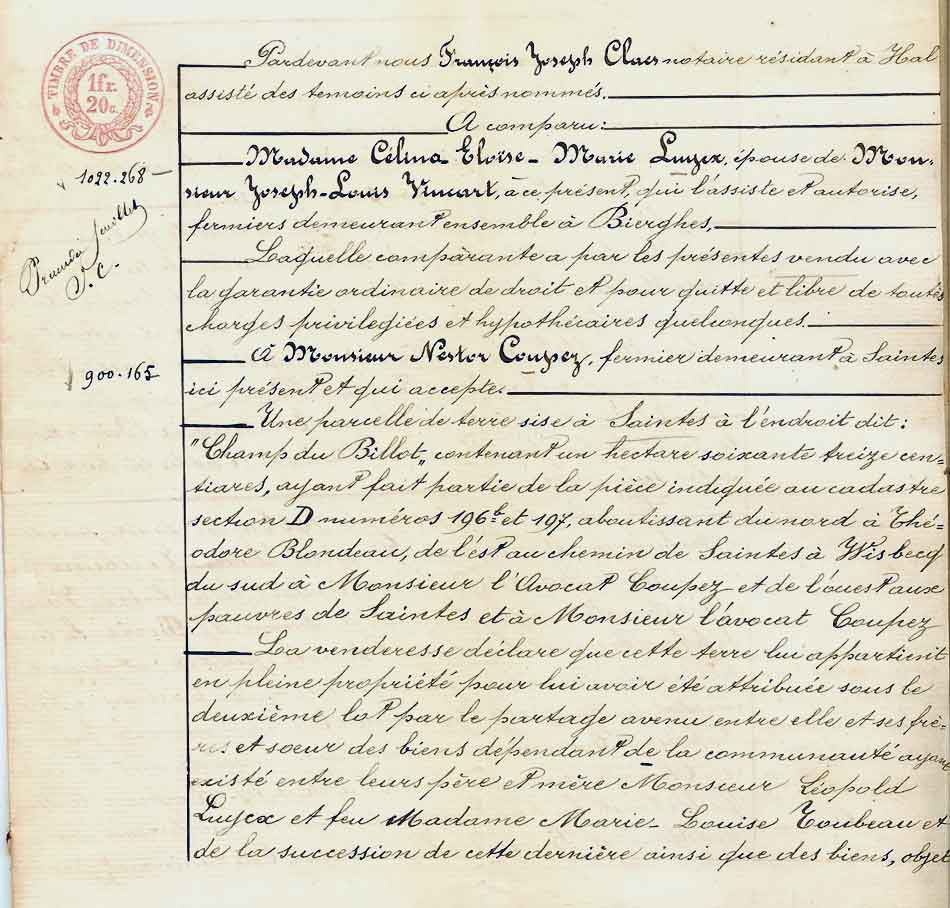 TIMBRE DE DIMENSION
1fr.
20c.
1022.268
Premier feuillet
900.165
Pardevant nous François Joseph Claes notaire résidant à Hal
assisté des temoins ci après nommés.
A comparu:
Madame Célina Eloïse-Marie Luyckx, épouse de Mon-
sieur Joseph-Louis Vinart, à ce présent, qui l'assiste et autorise,
fermiers demeurant ensemble à Bierghes,
Laquelle comparante a par les présentes vendu avec
la garantie ordinaire de droit et pour quitte et libre de toutes
charges privilegiées et hypothécaires quelconques.
À Monsieur Nestor Coupez, fermier demeurant à Saintes
ici présent et qui accepte.
Une parcelle de terre sise à Saintes à l'endroit dit:
"Champ du Billot„ contenant un hectare soixante treize cen-
tiares, ayant fait partie de la pièce indiquée au cadastre
section D numéros 196b et 197, aboutissant du nord à Thé-
odore Blondeau, de l'est au chemin de Saintes à Wisbecq
du sud à Monsieur l'Avocat Coupez et de l'ouest aux
pauvres de Saintes et à Monsieur l'avocat Coupez
La venderesse déclare que cette terre lui appartient
en pleine propriété pour lui avoir été attribuée sous le
deuxième lot par le partage avenu entre elle et ses frè-
res et soeur des biens dépendant de la communauté ayant
existé entre leurs père et mère Monsieur Léopold
et feu Madame Marie-Louise Toubeau et
de la succession de cette dernière ainsi que des biens, objet